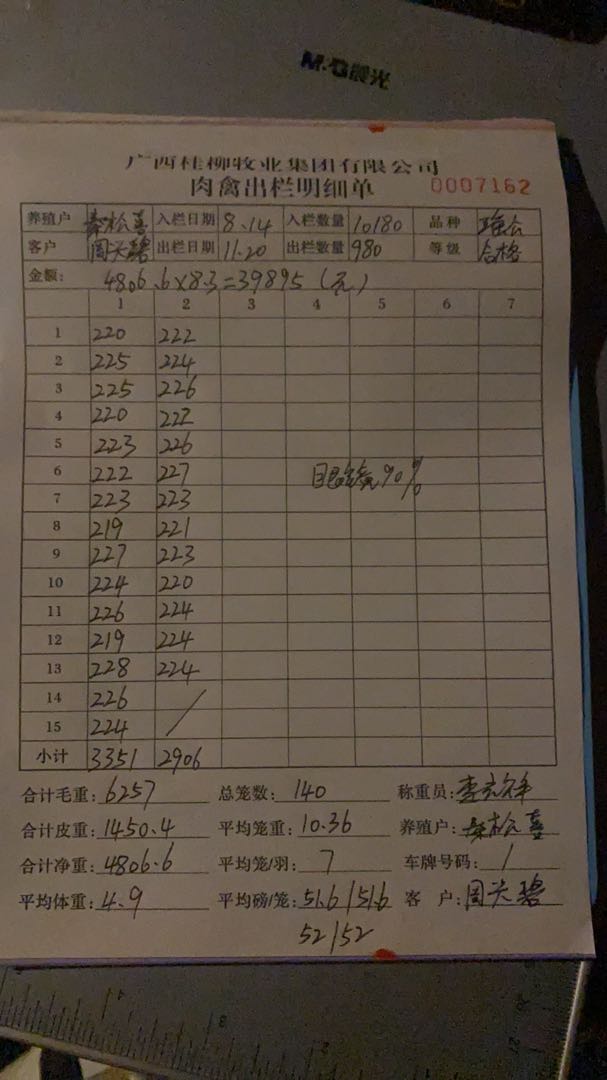 M&G晨光
广西桂柳牧业集团有限公司
肉禽出栏明细单 0007162
养殖户 松喜 入栏日期 8.14 入栏数量 10180 品种
客户 周 碧 出栏日期 11.20 出栏数量 980 等级 合格
金额: 4806.6×8.3=39895(元)
1 2 3 4 5 6 7
1 220 222
2 225 224
3 225 226
4 220 222
5 223 226
6 222 227 90%
7 223 223
8 219 221
9 227 223
10 224 220
11 226 224
12 219 224
13 228 224
14 226 /
15 224 /
小计 3351 2906
合计毛重: 6257 总笼数: 140 称重员: 李 祥
合计皮重: 1450.4 平均笼重: 10.36 养殖户: 松喜
合计净重: 4806.6 平均笼/羽: 7 车牌号码: 1
平均体重: 4.9 平均磅/笼: 51.6/51.6 客 户: 周 碧
52/52